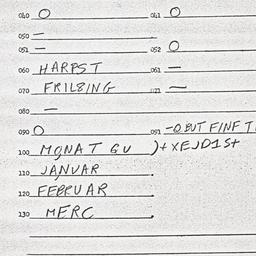 040 O 041 O
050 –
051 – 052 O
060 HARPST 061 –
070 FRILZING 071 –
080 –
090 O 091 -O BUT FINF T
100 MONAT GU )+XEJD1St
110 JANVAR
120 FEEPUAR
130 MERC